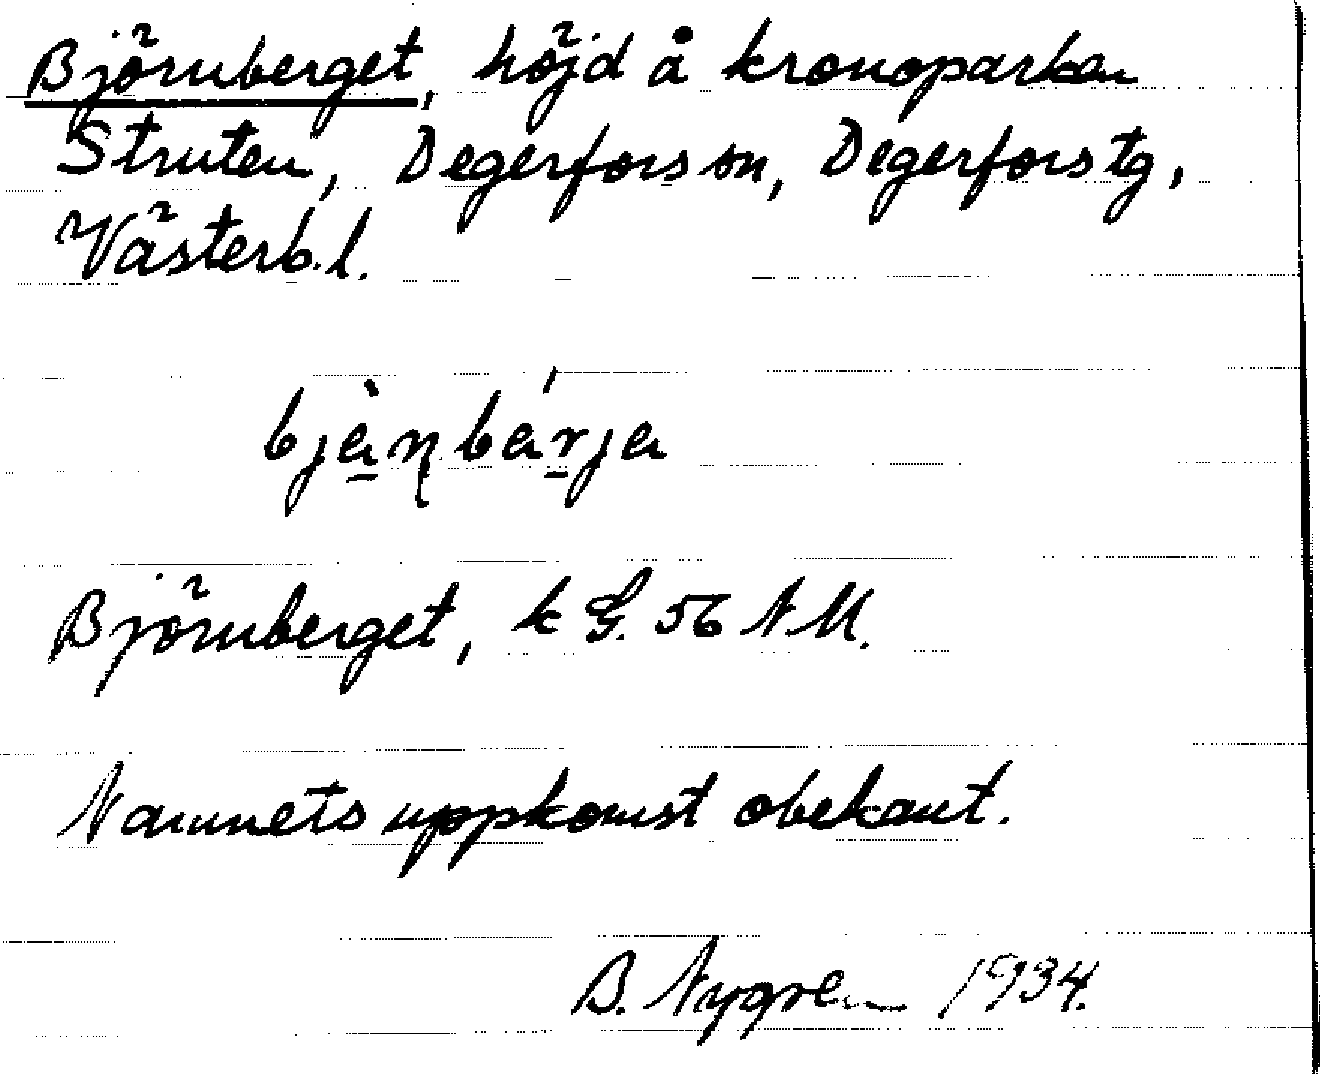 Björnberget, höjd å kronoparken
Struten, Degerfors sn, Degerfors tg,
Västerb.l.
bjànbárja
Björnberget, k G. 56 NM.
Namnets uppkomst obekant.
B. Nygren 1934.